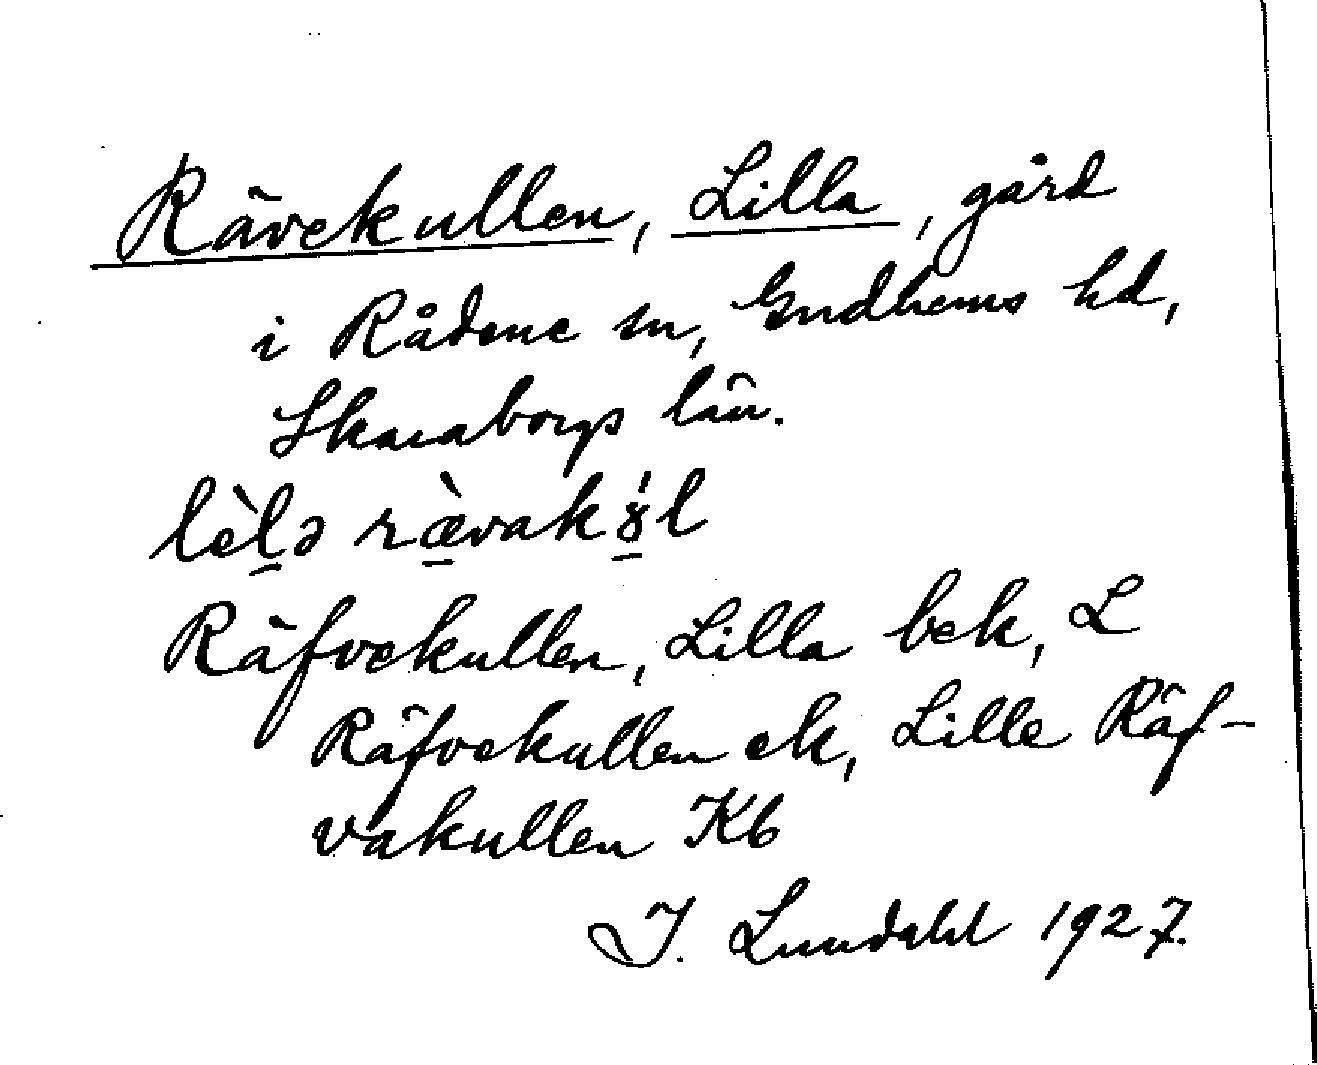 Rävekullen, Lilla, gård
i Rådene sn, Gudhems hd,
Skaraborgs län.
lèlə rævak8́l
Räfvekullen, Lilla bek, L
Räfvekullen ek, Lille Räf-
vakullen Kb
I. Lundahl 1927.